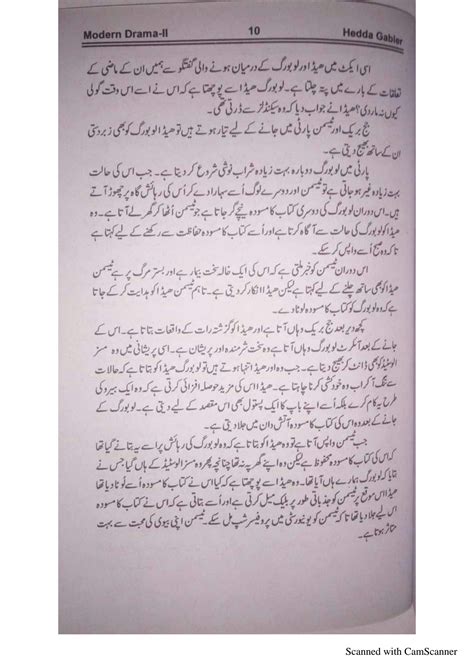 Modern Drama-II 10 Hedda Gabler
اسی ایکٹ میں ھیڈا اور لوبورگ کے درمیان ہونے والی گفتگو سے ہمیں ان کے ماضی کے
تعلقات کے بارے میں پتہ چلتا ہے۔ لوبورگ ھیڈا سے پوچھتا ہے کہ اس نے اسے اس وقت گولی
کیوں نہ مار دی؟ ھیڈا نے جواب دیا کہ وہ سکینڈلز سے ڈرتی تھی۔
جج بریک اور ٹیسمن پارٹی میں جانے کے لیے تیار ہوتے ہیں تو ھیڈا لوبورگ کو بھی زبردستی
ان کے ساتھ بھیج دیتی ہے۔
پارٹی میں لوبورگ دوبارہ بہت زیادہ شراب نوشی شروع کر دیتا ہے۔ جب اس کی حالت
بہت زیادہ غیر ہو جاتی ہے تو ٹیسمن اور دوسرے لوگ اُسے سہارا دے کر اُس کی رہائش گاہ پر چھوڑ آتے
ہیں۔ اس دوران لوبورگ کی دوسری کتاب کا مسودہ نیچے گر جاتا ہے جو ٹیسمن اُٹھا کر گھر لے آتا ہے۔ وہ
ھیڈا کو لوبورگ کی حالت سے آگاہ کرتا ہے اور اُسے کتاب کا مسودہ حفاظت سے رکھنے کے لیے کہتا ہے
تاکہ وہ صبح اُسے واپس کر سکے۔
اس دوران ٹیسمن کو خبر ملتی ہے کہ اس کی ایک خالہ سخت بیمار ہے اور بستر مرگ پر ہے ٹیسمن
ھیڈا کو بھی ساتھ چلنے کے لیے کہتا ہے لیکن ھیڈا انکار کر دیتی ہے۔ تاہم ٹیسمن ھیڈا کو ہدایت کر کے جاتا
ہے کہ وہ لوبورگ کو مسودہ لوٹا دے۔
کچھ دیر بعد جج بریک وہاں آتا ہے اور ھیڈا کو گزشتہ رات کے واقعات بتاتا ہے۔ اس کے
جانے کے بعد آئلرٹ لوبورگ وہاں آتا ہے وہ سخت شرمندہ اور پریشان ہے۔ اسی پریشانی میں وہ مسز
الوسٹیڈ کو بھی ڈانٹ کر بھیج دیتا ہے۔ جب وہ اور ھیڈا تنہا ہوتے ہیں تو لوبورگ اُسے بتاتا ہے کہ حالات
سے تنگ آ کر اب وہ خودکشی کرنا چاہتا ہے۔ ھیڈا اس کی مزید حوصلہ افزائی کرتی ہے کہ وہ ایک ہیرو کی
طرح یہ کام کرے بلکہ اُسے اپنے باپ کا ایک پستول بھی اس مقصد کے لیے دیتی ہے۔ لوبورگ کے
جانے کے بعد وہ اس کی کتاب کا مسودہ آتش دان میں جلا دیتی ہے۔
جب ٹیسمن واپس آتا ہے تو وہ ھیڈا کو بتاتا ہے کہ وہ لوبورگ کی رہائش پر اسے یہ بتانے گیا تھا
کہ اس کی کتاب کا مسودہ محفوظ ہے لیکن وہ اپنے گھر پہ نہ تھا چنانچہ پھر وہ مسز الوسٹیڈ کے ہاں گیا جس نے
بتایا کہ لوبورگ ہمارے ہاں آیا تھا۔ وہ ھیڈا سے پوچھتا ہے کہ کیا اس نے کتاب کا مسودہ اُسے لوٹا دیا تھا
ھیڈا اس موقع پر ٹیسمن کو جذباتی طور پر بلیک میل کرتی ہے اور اُسے بتاتی ہے کہ اس نے کتاب کا مسودہ
اس لیے جلا دیا تھا تاکہ ٹیسمن کو یونیورسٹی میں پروفیسر شپ مل سکے۔ ٹیسمن اپنی بیوی کی محبت سے بہت
متاثر ہوتا ہے۔
Scanned with CamScanner